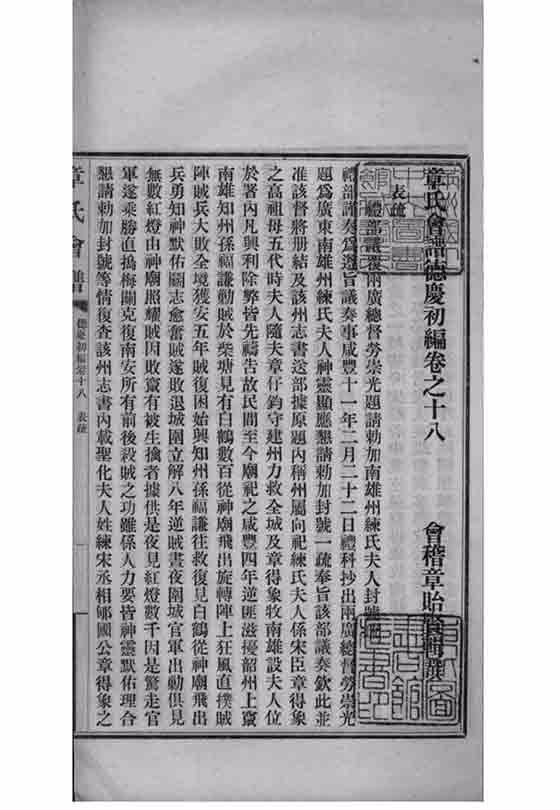 章氏會譜德慶初編卷之十八
會稽章貽賢輯撰
表疏
禮部議覆兩廣總督勞崇光題請勅加南雄州練氏夫人封號
禮部謹奏爲遵旨議奏事咸豐十一年二月二十二日禮科抄出兩廣總督勞崇光
題爲廣東南雄州練氏夫人神靈顯應懇請勅加封號一疏奉旨該部議奏欽此並
准該督將册結及該州志書送部據原題內稱州屬向祀練氏夫人係宋臣章得象
之高祖母五代時夫人隨夫章仔鈞守建州力救全城及章得象牧南雄設夫人位
於署內凡興利除弊皆先禱告故民間至今廟祀之咸豐四年逆匪滋擾韶州上竄
南雄知州孫福謙勦賊於柴塘見有白鶴數百從神廟飛出旋轉陣上狂風直撲賊
陣賊兵大敗全境獲安五年賊復困始興知州孫福謙往救復見白鶴從神廟飛出
兵勇知神默佑鬬志愈奮賊遂敗退城圍立解八年逆賊晝夜圍城官軍出勦俱見
無數紅燈由神廟照耀賊因敗竄有被生擒者據供是夜見紅燈數千因是驚走官
軍遂乘勝直搗梅關克復南安所有前後殺賊之功雖係人力要皆神靈默佑理合
懇請勅加封號等情復查該州志書內載聖化夫人姓練宋丞相郇國公章得象之
章氏會譜
德慶初編卷十八
表疏